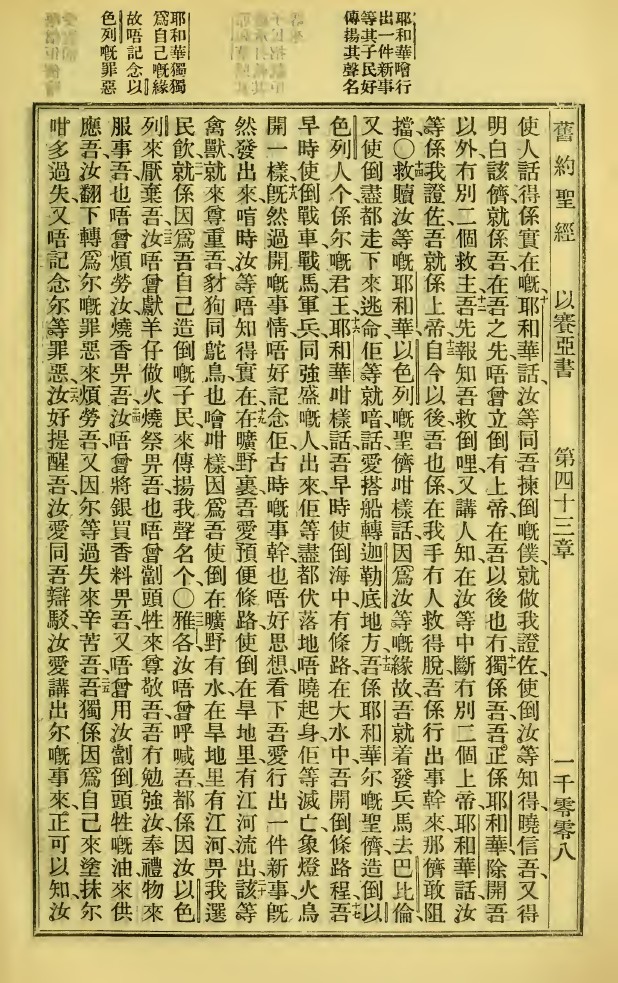 耶和華噲行
出一件新事
等其子民好
傳揚其聲名
耶和華獨獨
爲自己嘅緣
故唔記念以
色列嘅罪惡
舊約聖經 以賽亞書 第四十三章 一千零零八
使人話得係實在嘅、十耶和華話汝等同吾揀倒嘅僕就做我證佐、使倒汝等知得、曉信吾、又得
明白該儕就係吾、在吾之先唔曾立倒有上帝、在吾以後也冇、十一獨係吾、吾正係耶和華、除開吾
以外冇別二個救主、十二吾先報知、吾救倒哩、又講人知、在汝等中斷冇別二個上帝、耶和華話、汝
等係我證佐、吾就係上帝、十三自今以後吾也係、在我手冇人救得脫、吾係行出事幹來、那儕敢阻
擋、〇十四救贖汝等嘅耶和華、以色列嘅聖儕咁樣話、因爲汝等嘅緣故、吾就着發兵馬去巴比倫、
又使倒盡都走下來逃命、佢等就喑話愛搭船轉迦勒底地方、十五吾係耶和華、尔嘅聖儕、造倒以
色列人个、係尔嘅君王、十六耶和華咁樣話、吾早時使倒海中有條路、在大水中吾開倒條路程、十七吾
早時使倒戰車戰馬軍兵、同強盛嘅人出來、佢等盡都伏落地唔曉起身、佢等滅亡象燈火烏
開一樣、十八旣然過開嘅事情唔好記念、佢古時嘅事幹也唔好思想、十九看下吾愛行出一件新事、旣
然發出來、啃時汝等唔知得、實在在曠野裏吾愛預便條路、使倒在旱地里有江河流出、二十該等
禽獸就來尊重吾、豺狗同鴕鳥也噲咁樣、因爲吾使倒在曠野有水、在旱地里有江河、畀我選
民飲、二一就係因爲吾自己造倒嘅子民、來傳揚我聲名个、〇二二雅各汝唔曾呼喊吾、都係因汝以色
列來厭棄吾、二三汝唔曾獻羊仔做火燒祭畀吾、也唔曾劏頭牲來尊敬吾、吾冇勉強汝奉禮物來
服事吾、也唔曾煩勞汝燒香畀吾、二四汝唔曾將銀買香料畀吾、又唔曾用汝劏倒頭牲嘅油來供
應吾、汝翻下轉爲尔嘅罪惡來煩勞吾、又因尔等過失來辛苦吾、二五吾獨係因爲自己來塗抹尔
咁多過失、又唔記念尔等罪惡、二六汝好提醒吾、汝愛同吾辯駁、汝愛講出尔嘅事來、正可以知汝